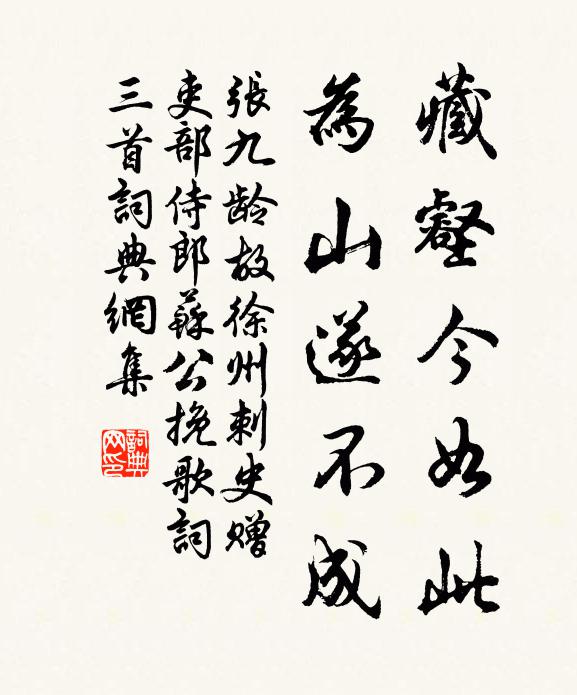 藏壑今如此
為山遂不成
張九齡故徐州刺史贈
吏部侍郎蘇公挽歌詞
三首詞典網集
詞典
网印